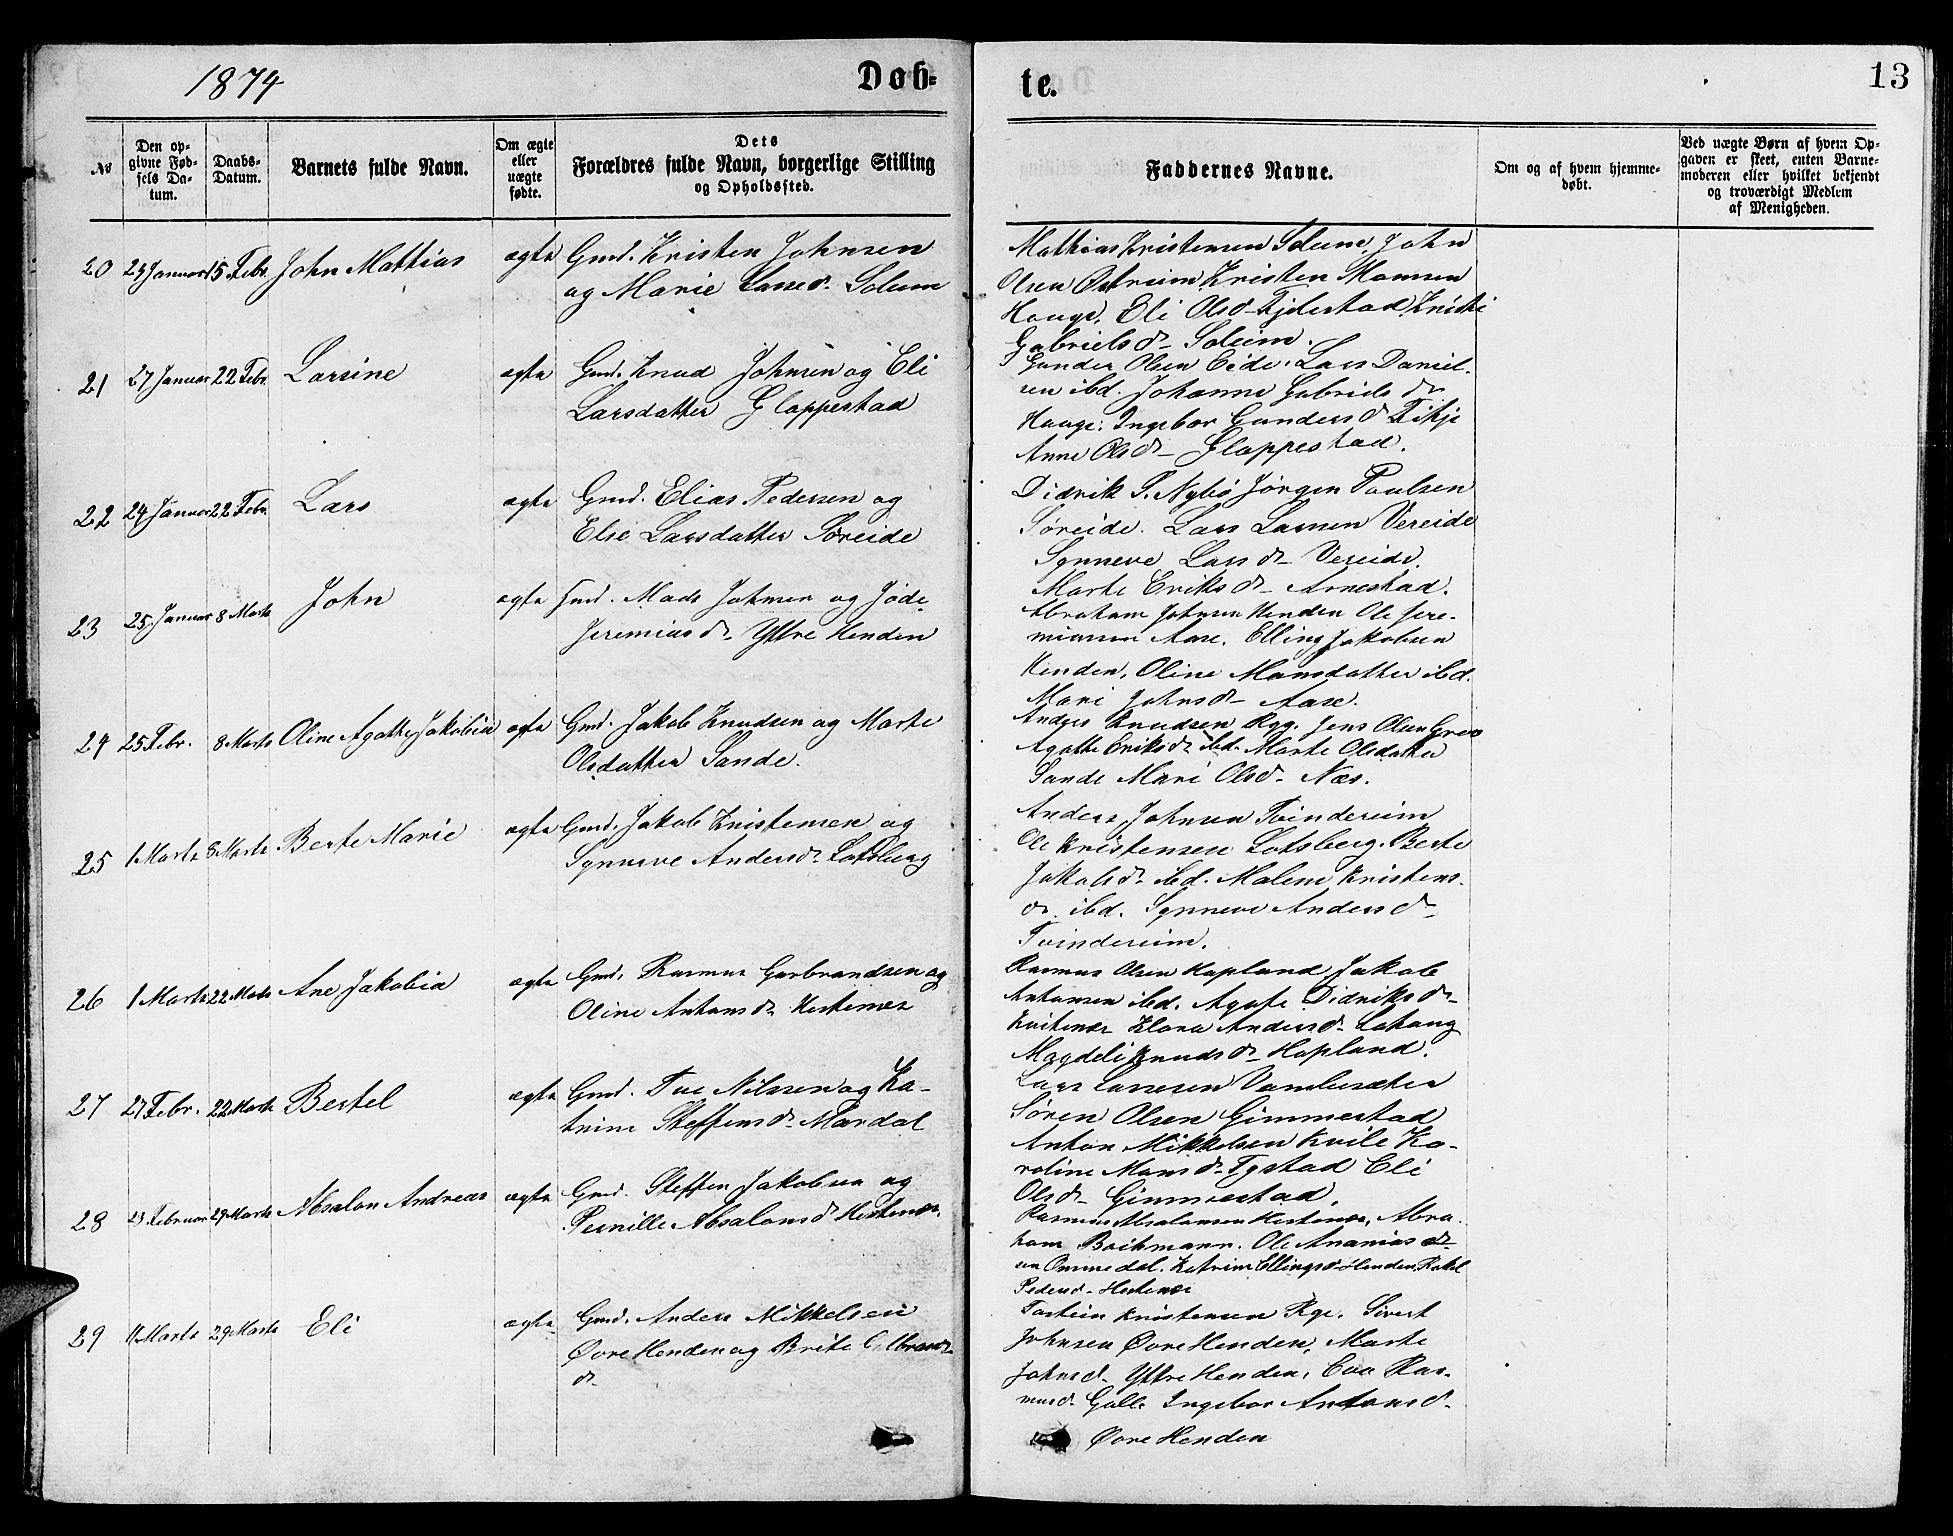 1874
Døb-
te.
13
No
Den op-
givne Fød-
sels Da-
tum.
Daabs-
Datum.
Barnets fulde Navn.
Om ægte
eller
uægte
fødte.
Dets
Forældres fulde Navn, borgerlige Stilling
og Opholdssted.
Faddernes Navne.
Om og af hvem hjemme-
døbt.
Ved uægte Børn af hvem Op-
gaven er skeet, enten Barne-
moderen eller hvilket bekjendt
og troværdigt Medlem
af Menigheden.
20 Januar 15 Febr. John Mathias ægte Gmd. Kristen Johnsen
og Marie Lassed. Solum
Mathias Kristensen Solum John
Olsen Østreim, Kristen Monsen
Hauge, Eli Olsd- Fjelestad, Kristi
Gabrielsd- Soleim.
21 27 Januar 22 Febr. Larsine ægte Gmd. Knud Johnsen og Eli
Larsdatter Gloppestad
Gunder Olsen Eide. Lars Daniel-
sen ibd. Johanne Gabrielsd-
Hauge. Ingebor Gundersd-
Anne Olsd- Gloppestad.
22 24 Januar 22 Febr. Lars ægte Gmd. Elias Pedersen og
Else Larsdatter Søreide
Didrik P. Nybø Jørgen Paulsen
Søreide. Lars Larsen Vereide
Synneve Larsd- Vereide.
Marte Eriksd- Arnestad.
23 25 Januar 8 Marts John ægte Gmd. Mads Johnsen og Jøde
Jeremiasd- Yttre Henden
Abraham Johnsen Henden Ole Jere-
miassen Aase. Elling Jakobsen
Henden, Oline Monsdatter ibd.
Mari Johnsd- Aase.
24 25 Febr. 8 Marts Oline Agathe Jakobia ægte Gmd. Jakob Knudsen og Marte
Olsdatter Sande.
Anders Knudsen Ryg. Jens Olsen
Agathe Eriksd- ibd. Marte Olsdatter
Sande Mari Olsd- Næs.
25 1 Marts 8 Marts Berte Marie ægte Gmd. Jakob Kristensen og
Synneve Andersd- Lotsberg
Anders Johnsen Tvindereim
Ole Kristensen Lotsberg. Berte
Jakobsd- ibd. Malene Kristens-
d- ibd. Synneve Andersd-
Tvindereim.
26 1 Marts 22 Marts Ane Jakobia ægte Gmd. Rasmus Garbrandsen og
Oline Antonsd- Hestenæs
Rasmus Olsen Hopland Jakob
Antonsen ibd. Agate Didriksd-
Klara Andersd-
Magdeli Knudsd- Hopland.
27 27 Febr. 22 Marts Bertel ægte Gmd. Tue Nilssen og Ka-
trine Steffensd- Mardal
Lars Larsen
Søren Olsen Gimmestad
Anton Mikkelsen Kvile Ka-
roline Monsd- Tystad Eli
Olsd- Gimmestad.
28 Februar 29 Marts Absalon Andreas ægte Gmd. Steffen Jakobsen og
Pernille Absalonsd- Hestenæs.
Rasmus Absalonsen Hestenæs, Abra-
ham Bachmann. Ole Ananias-
sen Ommedal. Katrine Ellingsd- Henden, Rakel
Pedersd- Hestenæs
29 11 Marts 29 Marts Eli ægte Gmd. Anders Mikkelsen
Øvre Henden og Brite
d-
Torstein Kristensen Ryg. Sivert
Johnsen Øvre Henden, Marte
Johnsd- Yttre Henden, Eva Ras-
musd- Ingebor Antonsd-
Øvre Henden